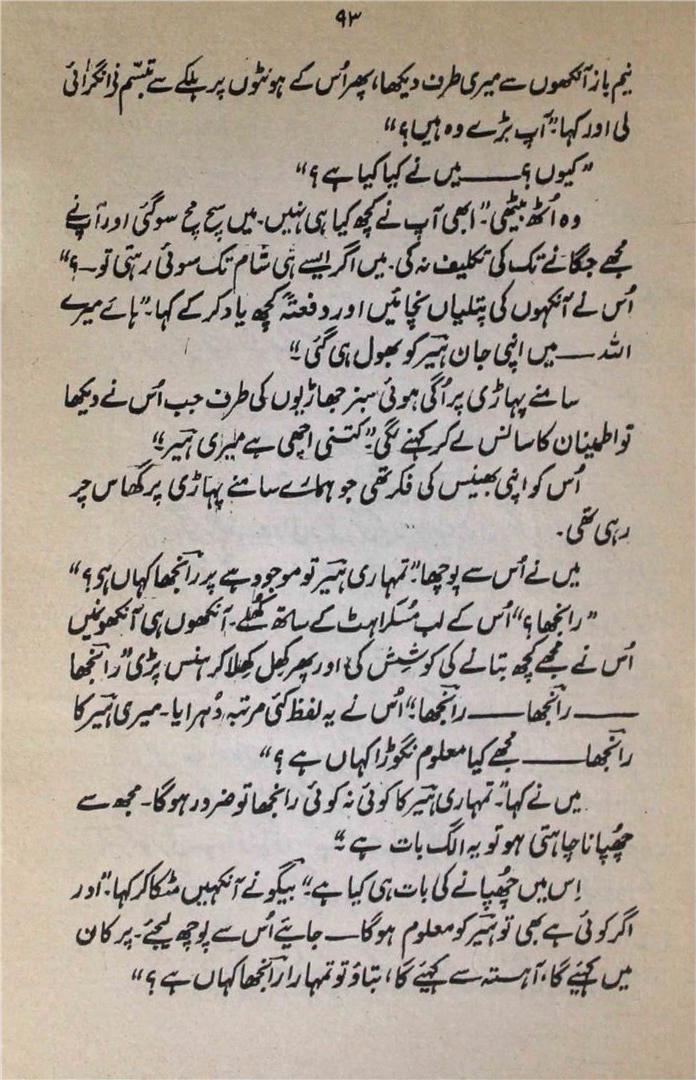 ۹۳
نیم باز آنکھوں سے میری طرف دیکھا، پھر اُس کے ہونٹوں پر ہلکے سے تبسّم نے انگڑائی
لی اور کہا۔ "آپ بڑے وہ ہیں؟"
"کیوں؟ــــــ میں نے کیا کیا ہے؟"
وہ اُٹھ بیٹھی۔ "ابھی آپ نے کچھ کیا ہی نہیں۔ میں سچ مچ سو گئی اور آپ نے
مجھے جگانے تک کی تکلیف نہ کی۔ میں اگر ایسے ہی شام تک سوئی رہتی تو۔۔؟"
اُس نے آنکھوں کی پتلیاں نچائیں اور دفعتہً کچھ یاد کر کے کہا۔ "ہائے میرے
اللہ ـــــ میں اپنی جان ہیر کو بھول ہی گئی۔"
سامنے پہاڑی پر اُگی ہوئی سبز جھاڑیوں کی طرف جب اُس نے دیکھا
تو اطمینان کا سانس لے کر کہنے لگی۔ "کتنی اچھی ہے میری ہیر۔"
اُس کو اپنی بھینس کی فکر تھی جو ہمارے سامنے پہاڑی پر گھاس چر
رہی تھی۔
میں نے اُس سے پوچھا۔ "تمہاری ہیر تو موجود ہے پر رانجھا کہاں ہی؟"
"رانجھا؟" اُس کے لب مُسکراہٹ کے ساتھ کُھلے۔ آنکھوں ہی آنکھوں میں
اُس نے مجھے کچھ بتانے کی کوشش کی اور پھر کھل کھلا کر ہنس پڑی "رانجھا
ــــــ رانجھا ــــــ رانجھا" اُس نے یہ لفظ کئی مرتبہ دُہرایا۔ میری ہیر کا
رانجھا ــــــ مجھے کیا معلوم نگوڑا کہاں ہے؟"
میں نے کہا۔ "تمہاری ہیر کا کوئی نہ کوئی رانجھا تو ضرور ہو گا۔ مجھ سے
چھُپانا چاہتی ہو تو یہ الگ بات ہے۔"
اِس میں چھُپانے کی بات ہی کیا ہے۔" بیگو نے آنکھیں مٹکا کر کہا۔ "اور
اگر کوئی ہے بھی تو ہیر کو معلوم ہو گا ـــ جائیے اُس سے پوچھ لیجئے۔ پر کان
میں کہئیے گا، آہستہ سے کہئیے گا، بتاؤ تو تمہارا رانجھا کہاں ہے؟"